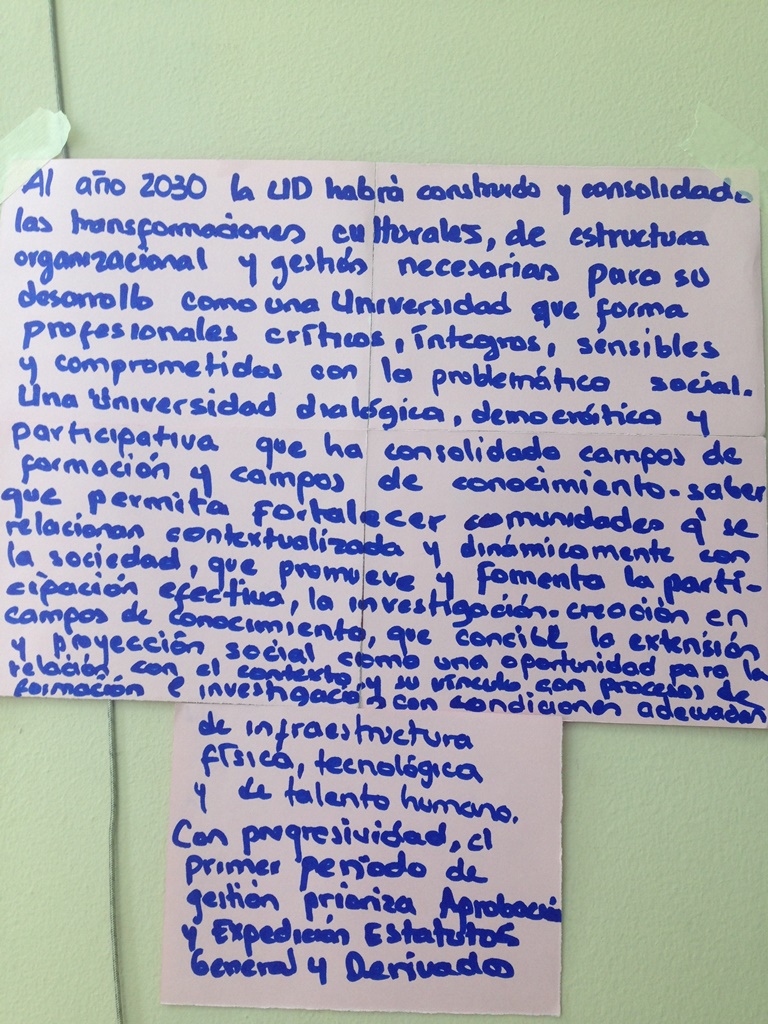 Al año 2030 la UD habrá construido y consolidado
las transformaciones culturales, de estructura
organizacional y gestión necesarias para su
desarrollo como una Universidad que forma
profesionales críticos, íntegros, sensibles
y comprometidos con la problemática social.
Una Universidad dialógica, democrática y
participativa que ha consolidado campos de
formación y campos de conocimiento-saber
que permita fortalecer comunidades q' se
relacionan contextualizada y dinámicamente con
la sociedad, que promueve y fomenta la parti-
cipación efectiva, la investigación-creación en
campos de conocimiento, que concibe la extensión
y proyección social como una oportunidad para la
relación con el contexto y su vínculo con procesos de
formación e investigación con condiciones adecuadas
de infraestructura
física, tecnológica
y de talento humano.
Con progresividad, el
primer periodo de
gestión prioriza Aprobación
y Expedición Estatutos
General y Derivados